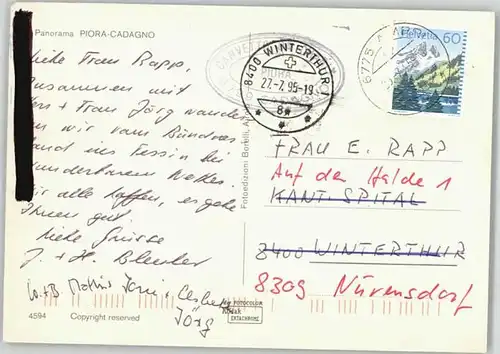 Panorama PIORA-CADAGNO
Liebe Frau Rapp,
Zusammen mit
Herrn + Frau Jörg wander
wir vom Bündner
land ins Tessin bei
wunderbarem Wetter.
Wir alle hoffen, es gehe
Ihnen gut.
Liebe Grüsse
J. + H. Bleuler
Jörg
4594
Copyright reserved
Fotoedizioni Borelli, A
PIORA
8400 WINTERTHUR 1
27.-7. 95-19
8*
6775 A
Helvetia 60
FRAU E. RAPP
Auf der Halde 1
KANT. SPITAL
8400 WINTERTHUR
8309 Nürensdorf
FOTOCOLOR
Kodak
EKTACHROME